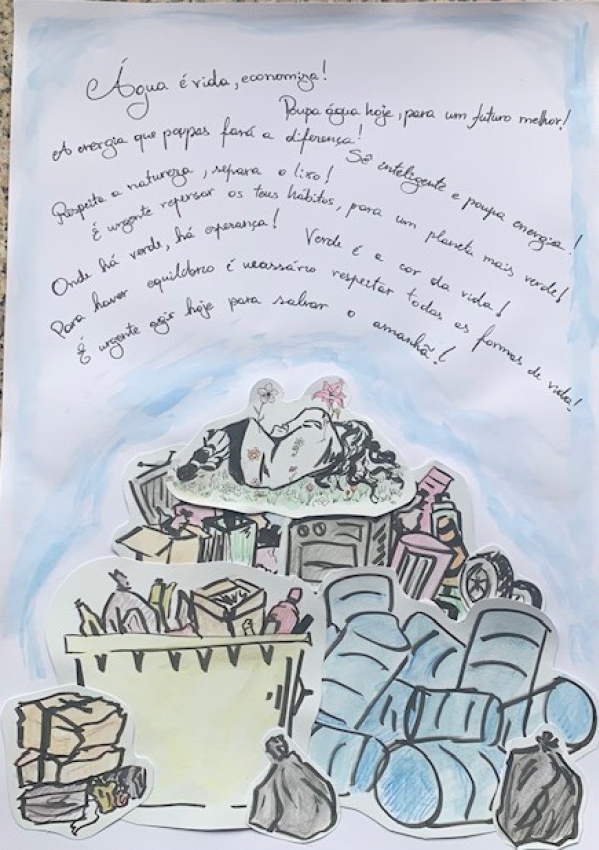 Água é vida, economiza!
Poupa água hoje, para um futuro melhor!
A energia que poupas fará a diferença!
Sê inteligente e poupa energia!
Respeita a natureza, separa o lixo!
É urgente repensar os teus hábitos, para um planeta mais verde!
Onde há verde, há esperança! Verde é a cor da vida!
Para haver equilíbrio é necessário respeitar todas as formas de vida!
É urgente agir hoje para salvar o amanhã!